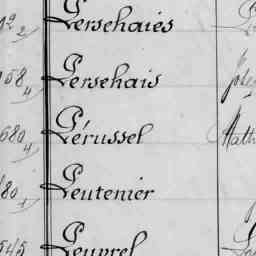 Persehaies
158 4 Persehais
680 4 Pérussel Math
80 1 Peutenier
545 Peuvrel